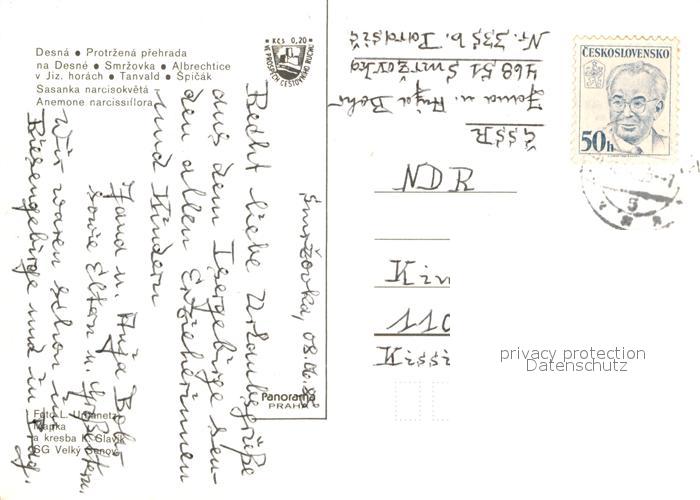 Desná • Protržená přehrada
na Desné • Smržovka • Albrechtice
v Jiz. horách • Tanvald • Špičák
Sasanka narcisokvětá
Anemone narcissiflora
Kčs 0,20
VE PROSPĚCH CESTOVNÍHO RUCHU
Smržovka, 08.06.86
Recht liebe Urlaubsgrüße
aus dem Isergebirge sen-
den allen Erzieherinnen
und Kindern
Jana u. Anja Bohr
sowie Eltern u. Großeltern.
Wir waren schon im
Riesengebirge und in Prag.
Foto L. Urbanetz
Mapka
a kresba K. Slavík
SG Velký Šenov
Panorama
PRAHA
Nr. 335 b.
468 51 Smržovka
Jana u. Anja Bohr
ČSSR
ČESKOSLOVENSKO
50h
5
NDR
Kin
110
privacy protection
Datenschutz